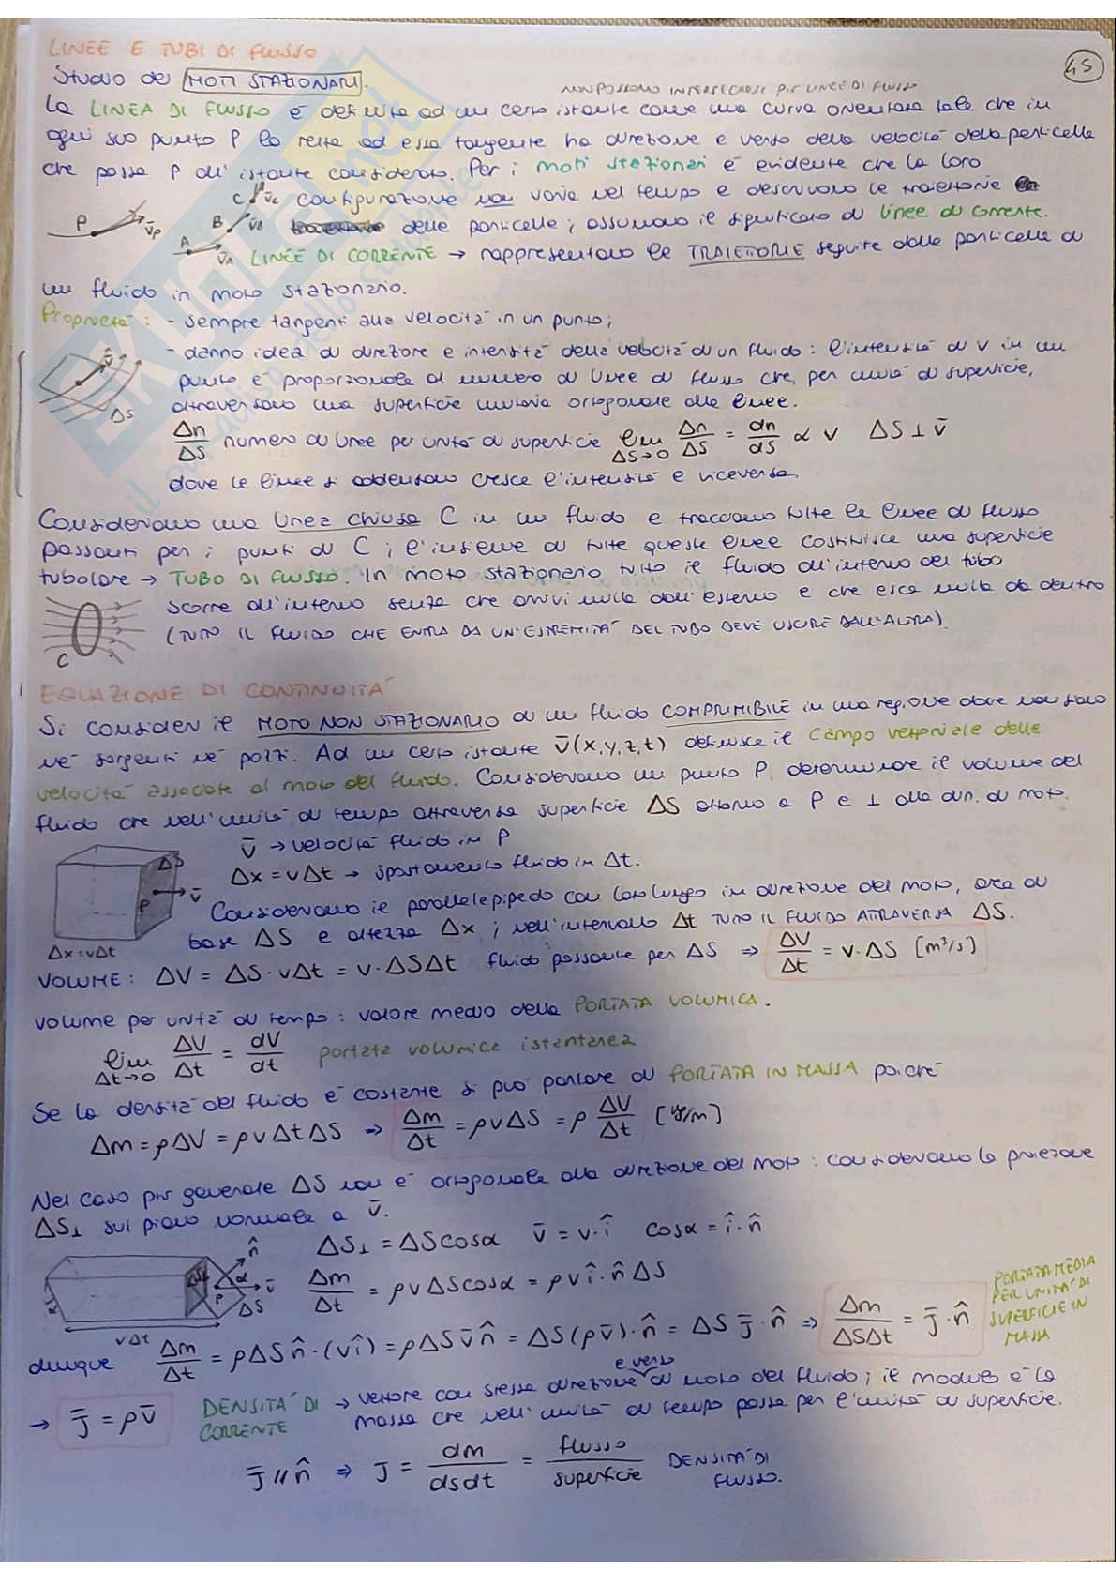 LINEE E TUBI DI FLUSSO
45
Studio dei MOTI STAZIONARI.
NON POSSONO INTERSECARSI PIÙ LINEE DI FLUSSO
La LINEA DI FLUSSO è definita ad un certo istante come una curva orientata tale che in
ogni suo punto P la retta ad essa tangente ha direzione e verso della velocità della particella
che passa P all'istante considerato. Per i moti stazionari è evidente che la loro
configurazione non varia nel tempo e descrivono le traiettorie
delle particelle; assumono il significato di linee di corrente.
P v̄P A v̄A B v̄B C v̄C
LINEE DI CORRENTE → rappresentano le TRAIETTORIE seguite dalle particelle di
un fluido in moto stazionario.
Proprietà: - sempre tangenti alla velocità in un punto;
- danno idea di direzione e intensità della velocità di un fluido: l'intensità di v in un
punto è proporzionale al numero di linee di flusso che, per unità di superficie,
attraversano una superficie unitaria ortogonale alle linee.
v̄ ΔS
Δn/ΔS numero di linee per unità di superficie lim ΔS→0 Δn/ΔS = dn/dS ∝ v ΔS ⊥ v̄
dove le linee si addensano cresce l'intensità e viceversa.
Consideriamo una linea chiusa C in un fluido e tracciamo tutte le linee di flusso
passanti per i punti di C; l'insieme di tutte queste linee costituisce una superficie
tubolare → TUBO DI FLUSSO. In moto stazionario tutto il fluido all'interno del tubo
scorre all'interno senza che arrivi nulla dall'esterno e che esca nulla da dentro
(TUTTO IL FLUIDO CHE ENTRA DA UN'ESTREMITÀ DEL TUBO DEVE USCIRE DALL'ALTRA).
C
EQUAZIONE DI CONTINUITÀ
Si consideri il MOTO NON STAZIONARIO di un fluido COMPRIMIBILE in una regione dove non sono
né sorgenti né pozzi. Ad un certo istante v̄(x,y,z,t) definisce il campo vettoriale delle
velocità associate al moto del fluido. Consideriamo un punto P, determinare il volume del
fluido che nell'unità di tempo attraversa superficie ΔS attorno a P e ⊥ alla dir. di moto.
v̄ → velocità fluido in P
Δx = vΔt → spostamento fluido in Δt.
ΔS P v̄
Consideriamo il parallelepipedo con lato lungo in direzione del moto, area di
base ΔS e altezza Δx; nell'intervallo Δt TUTTO IL FLUIDO ATTRAVERSA ΔS.
Δx = vΔt
VOLUME: ΔV = ΔS · vΔt = v · ΔSΔt fluido passante per ΔS ⇒ ΔV/Δt = v·ΔS [m³/s]
volume per unità di tempo: valore medio della PORTATA VOLUMICA.
lim Δt→0 ΔV/Δt = dV/dt portata volumica istantanea
Se la densità del fluido è costante si può parlare di PORTATA IN MASSA poiché
Δm = ρΔV = ρvΔtΔS ⇒ Δm/Δt = ρvΔS = ρ ΔV/Δt [kg/m]
Nel caso più generale ΔS non è ortogonale alla direzione del moto: consideriamo la proiezione
ΔS⊥ sul piano normale a v̄.
ΔS⊥ = ΔS cosα v̄ = v·î cosα = î·n̂
n̂ ΔS⊥ α v̄ P ΔS
Δm/Δt = ρvΔS cosα = ρv î·n̂ ΔS
vΔt
PORTATA MEDIA
PER UNITÀ DI
SUPERFICIE IN
MASSA
dunque Δm/Δt = ρΔS n̂·(vî) = ρΔS v̄ n̂ = ΔS(ρv̄)·n̂ = ΔS J̄·n̂ ⇒ Δm/ΔSΔt = J̄·n̂
e verso
→ J̄ = ρv̄ DENSITÀ DI CORRENTE → vettore con stessa direzione di moto del fluido; il modulo è la
massa che nell'unità di tempo passa per l'unità di superficie.
J̄ // n̂ ⇒ J = dm/dsdt = flusso/superficie DENSITÀ DI FLUSSO.